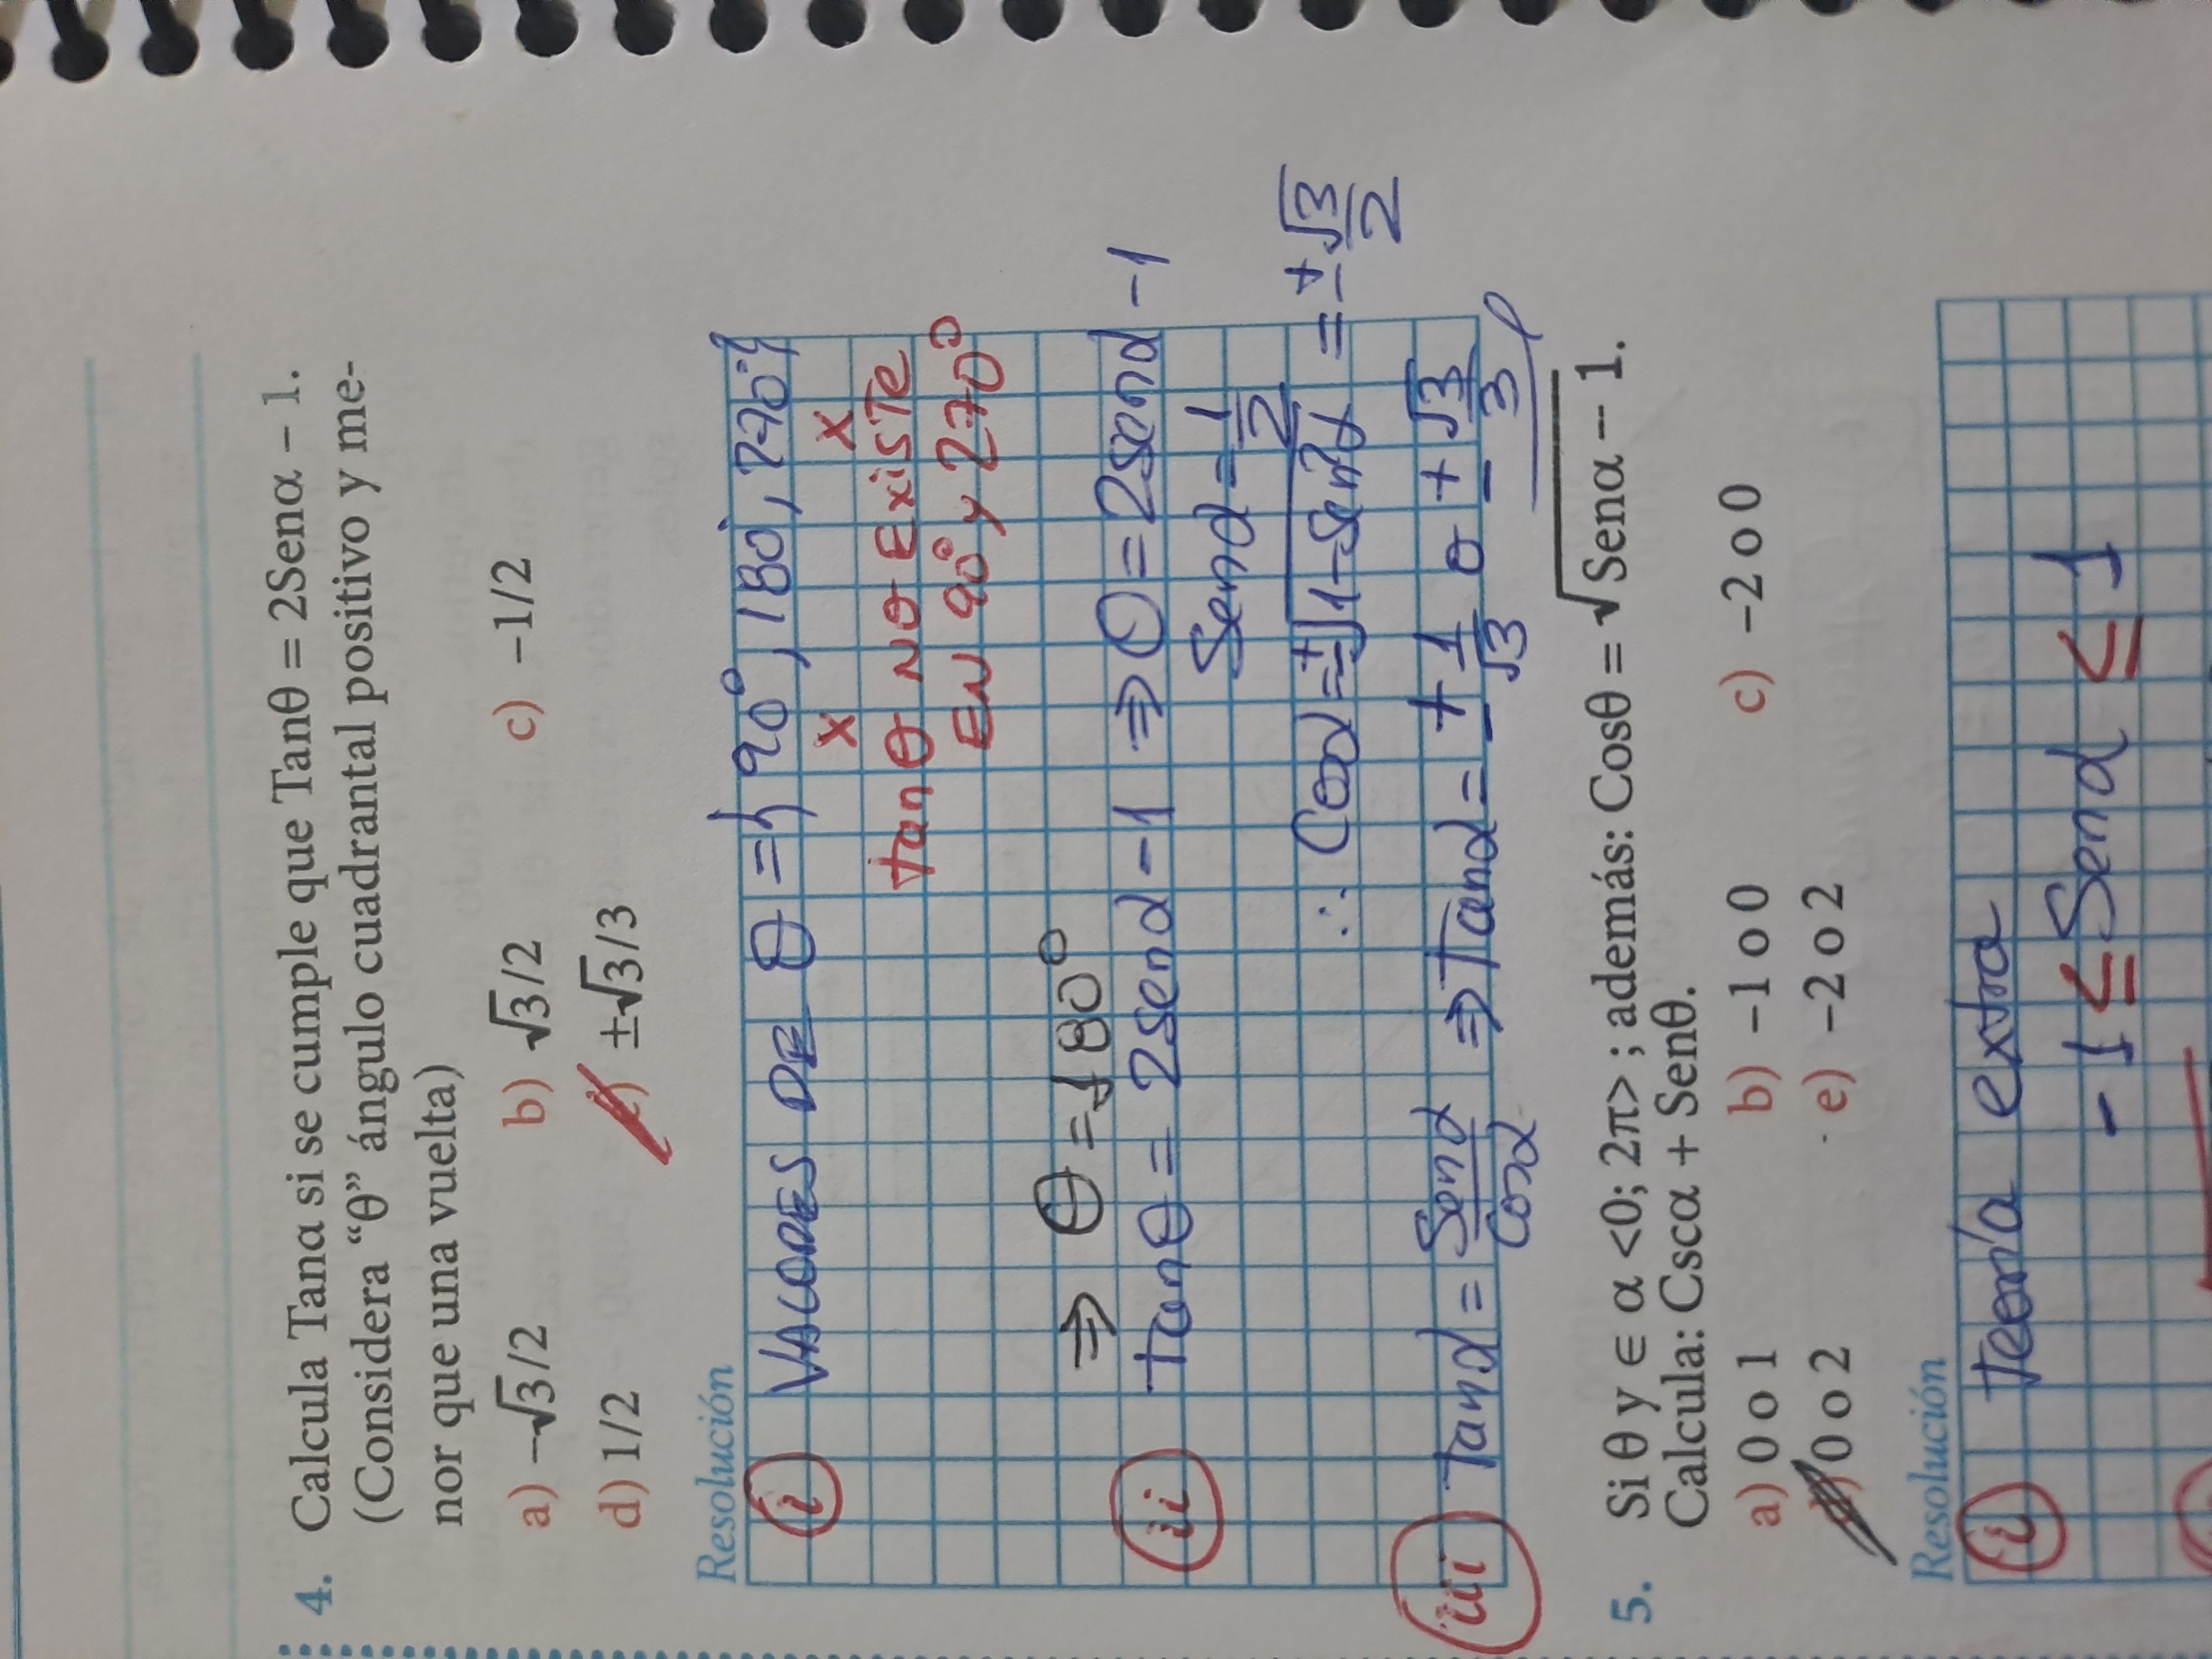 4. Calcula Tanα si se cumple que Tanθ = 2Senα – 1.
(Considera “θ” ángulo cuadrantal positivo y me-
nor que una vuelta)
a) –√3/2 b) √3/2 c) –1/2
d) 1/2 e) ±√3/3
Resolución
i VALORES DE θ = { 90°, 180°, 270° }
x x
tanθ NO EXISTE
EN 90° y 270°
⇒ θ = 180°
ii tanθ = 2senα – 1 ⇒ 0 = 2senα – 1
Senα = 1/2
∴ Cosα = ±√1 – Sen²α = ±√3/2
iii Tanα = Senα/Cosα ⇒ Tanα = ± 1/√3 o ± √3/3
5. Si θ y ∈ α <0; 2π> ; además: Cosθ = √Senα – 1.
Calcula: Cscα + Senθ.
a) 0 o 1 b) –1 o 0 c) –2 o 0
d) 0 o 2 e) –2 o 2
Resolución
i Teoría extra
– 1 ≤ Senα ≤ 1